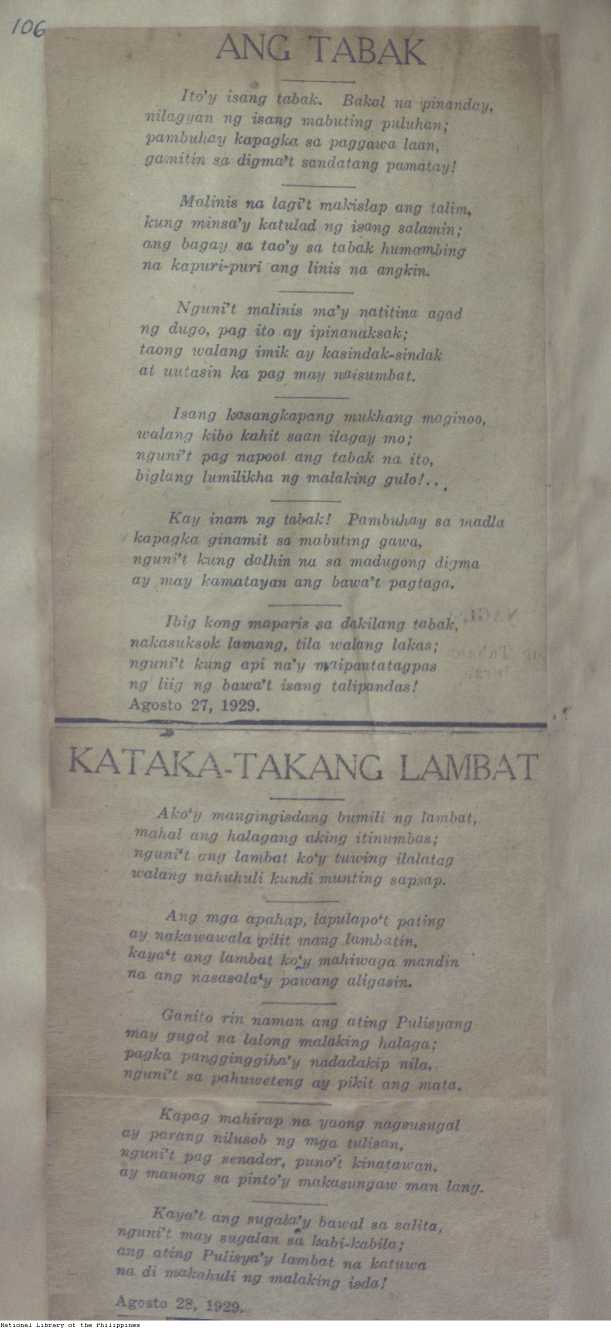 106
ANG TABAK
Ito'y isang tabak. Bakal na pinanday,
nilagyan ng isang mabuting puluhan;
pambuhay kapagka sa paggawa laan,
gamitin sa digma't sandatang pamatay!
Malinis na lagi't makislap ang talim,
kung minsa'y katulad ng isang salamin;
ang bagay sa tao'y sa tabak humambing
na kapuri-puri ang linis na angkin.
Nguni't malinis ma'y natitina agad
ng dugo, pag ito ay ipinanaksak;
taong walang imik ay kasindak-sindak
at uutasin ka pag may naisumbat.
Isang kasangkapang mukhang maginoo,
walang kibo kahit saan ilagay mo;
nguni't pag napoot ang tabak na ito,
biglang lumilikha ng malaking gulo!...
Kay inam ng tabak! Pambuhay sa madla
kapagka ginamit sa mabuting gawa,
nguni't kung dalhin na sa madugong digma
ay may kamatayan ang bawa't pagtaga.
Ibig kong maparis sa dakilang tabak,
nakasuksok lamang, tila walang lakas;
nguni't kung api na'y maipautatagpas
ng liig ng bawa't isang talipandas!
Agosto 27, 1929.
KATAKA-TAKANG LAMBAT
Ako'y mangingisdang bumili ng lambat,
mahal ang halagang aking itinumbas;
nguni't ang lambat ko'y tuwing ilalatag
walang nahuhuli kundi munting sapsap.
Ang mga apahap, lapulapo't pating
ay nakawawala pilit mang lambatin,
kaya't ang lambat ko'y mahiwaga mandin
na ang nasasala'y pawang aligasin.
Ganito rin naman ang ating Pulisyang
may gugol na lalong malaking halaga;
pagka pangginggiha'y nadadakip nila,
nguni't sa pahuweteng ay pikit ang mata.
Kapag mahirap na yaong nagsusugal
ay parang nilusob ng mga tulisan,
nguni't pag senador, puno't kinatawan,
ay manong sa pinto'y makasungaw man lang.
Kaya't ang sugala'y bawal sa salita,
nguni't may sugalan sa kabi-kabila;
ang ating Pulisya'y lambat na katuwa
na di makahuli ng malaking isda!
Agosto 28, 1929.
National Library of the Philippines